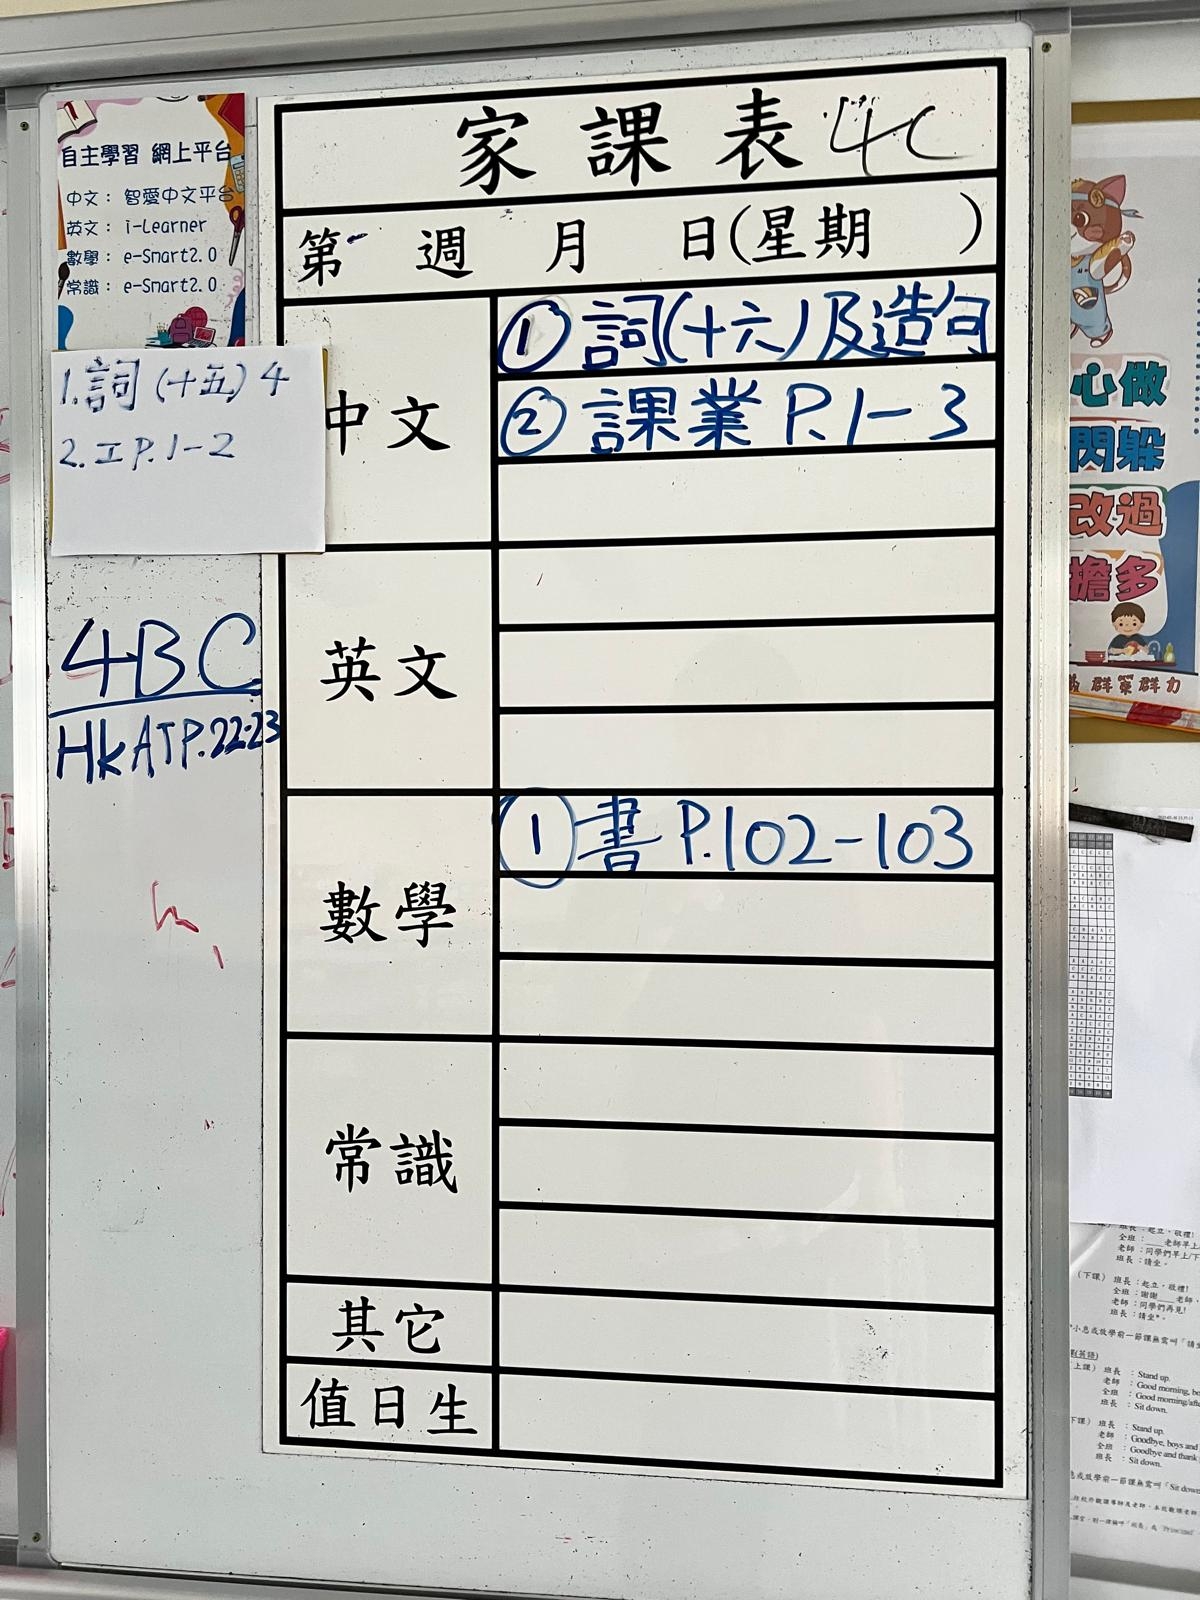 自主學習 網上平台
中文： 智愛中文平台
英文： i-Learner
數學： e-Smart2.0
常識： e-Smart2.0
1.詞(十五)4
2.工P.1-2
4BC
HkATP.22-23
家課表 4C
第 週 月 日(星期 )
中文
① 詞(十六)及造句
② 課業 P.1-3
英文
數學
① 書 P.102-103
常識
其它
值日生
心做
閃躲
改過
擔多
群策群力
班長：起立，敬禮!
全班：___老師早上/
老師：同學們早上/下
班長：請坐。
(下課) 班長：起立，敬禮!
全班：謝謝___老師，
老師：同學們再見!
班長：請坐*。
*小息或放學前一節課無需叫「請坐
(英語)
上課) 班長：Stand up.
老師：Good morning, bo
全班：Good morning/afte
班長：Sit down.
下課) 班長：Stand up.
老師：Goodbye, boys and
全班：Goodbye and thank
班長：Sit down.
息或放學前一節課無需叫「Sit down